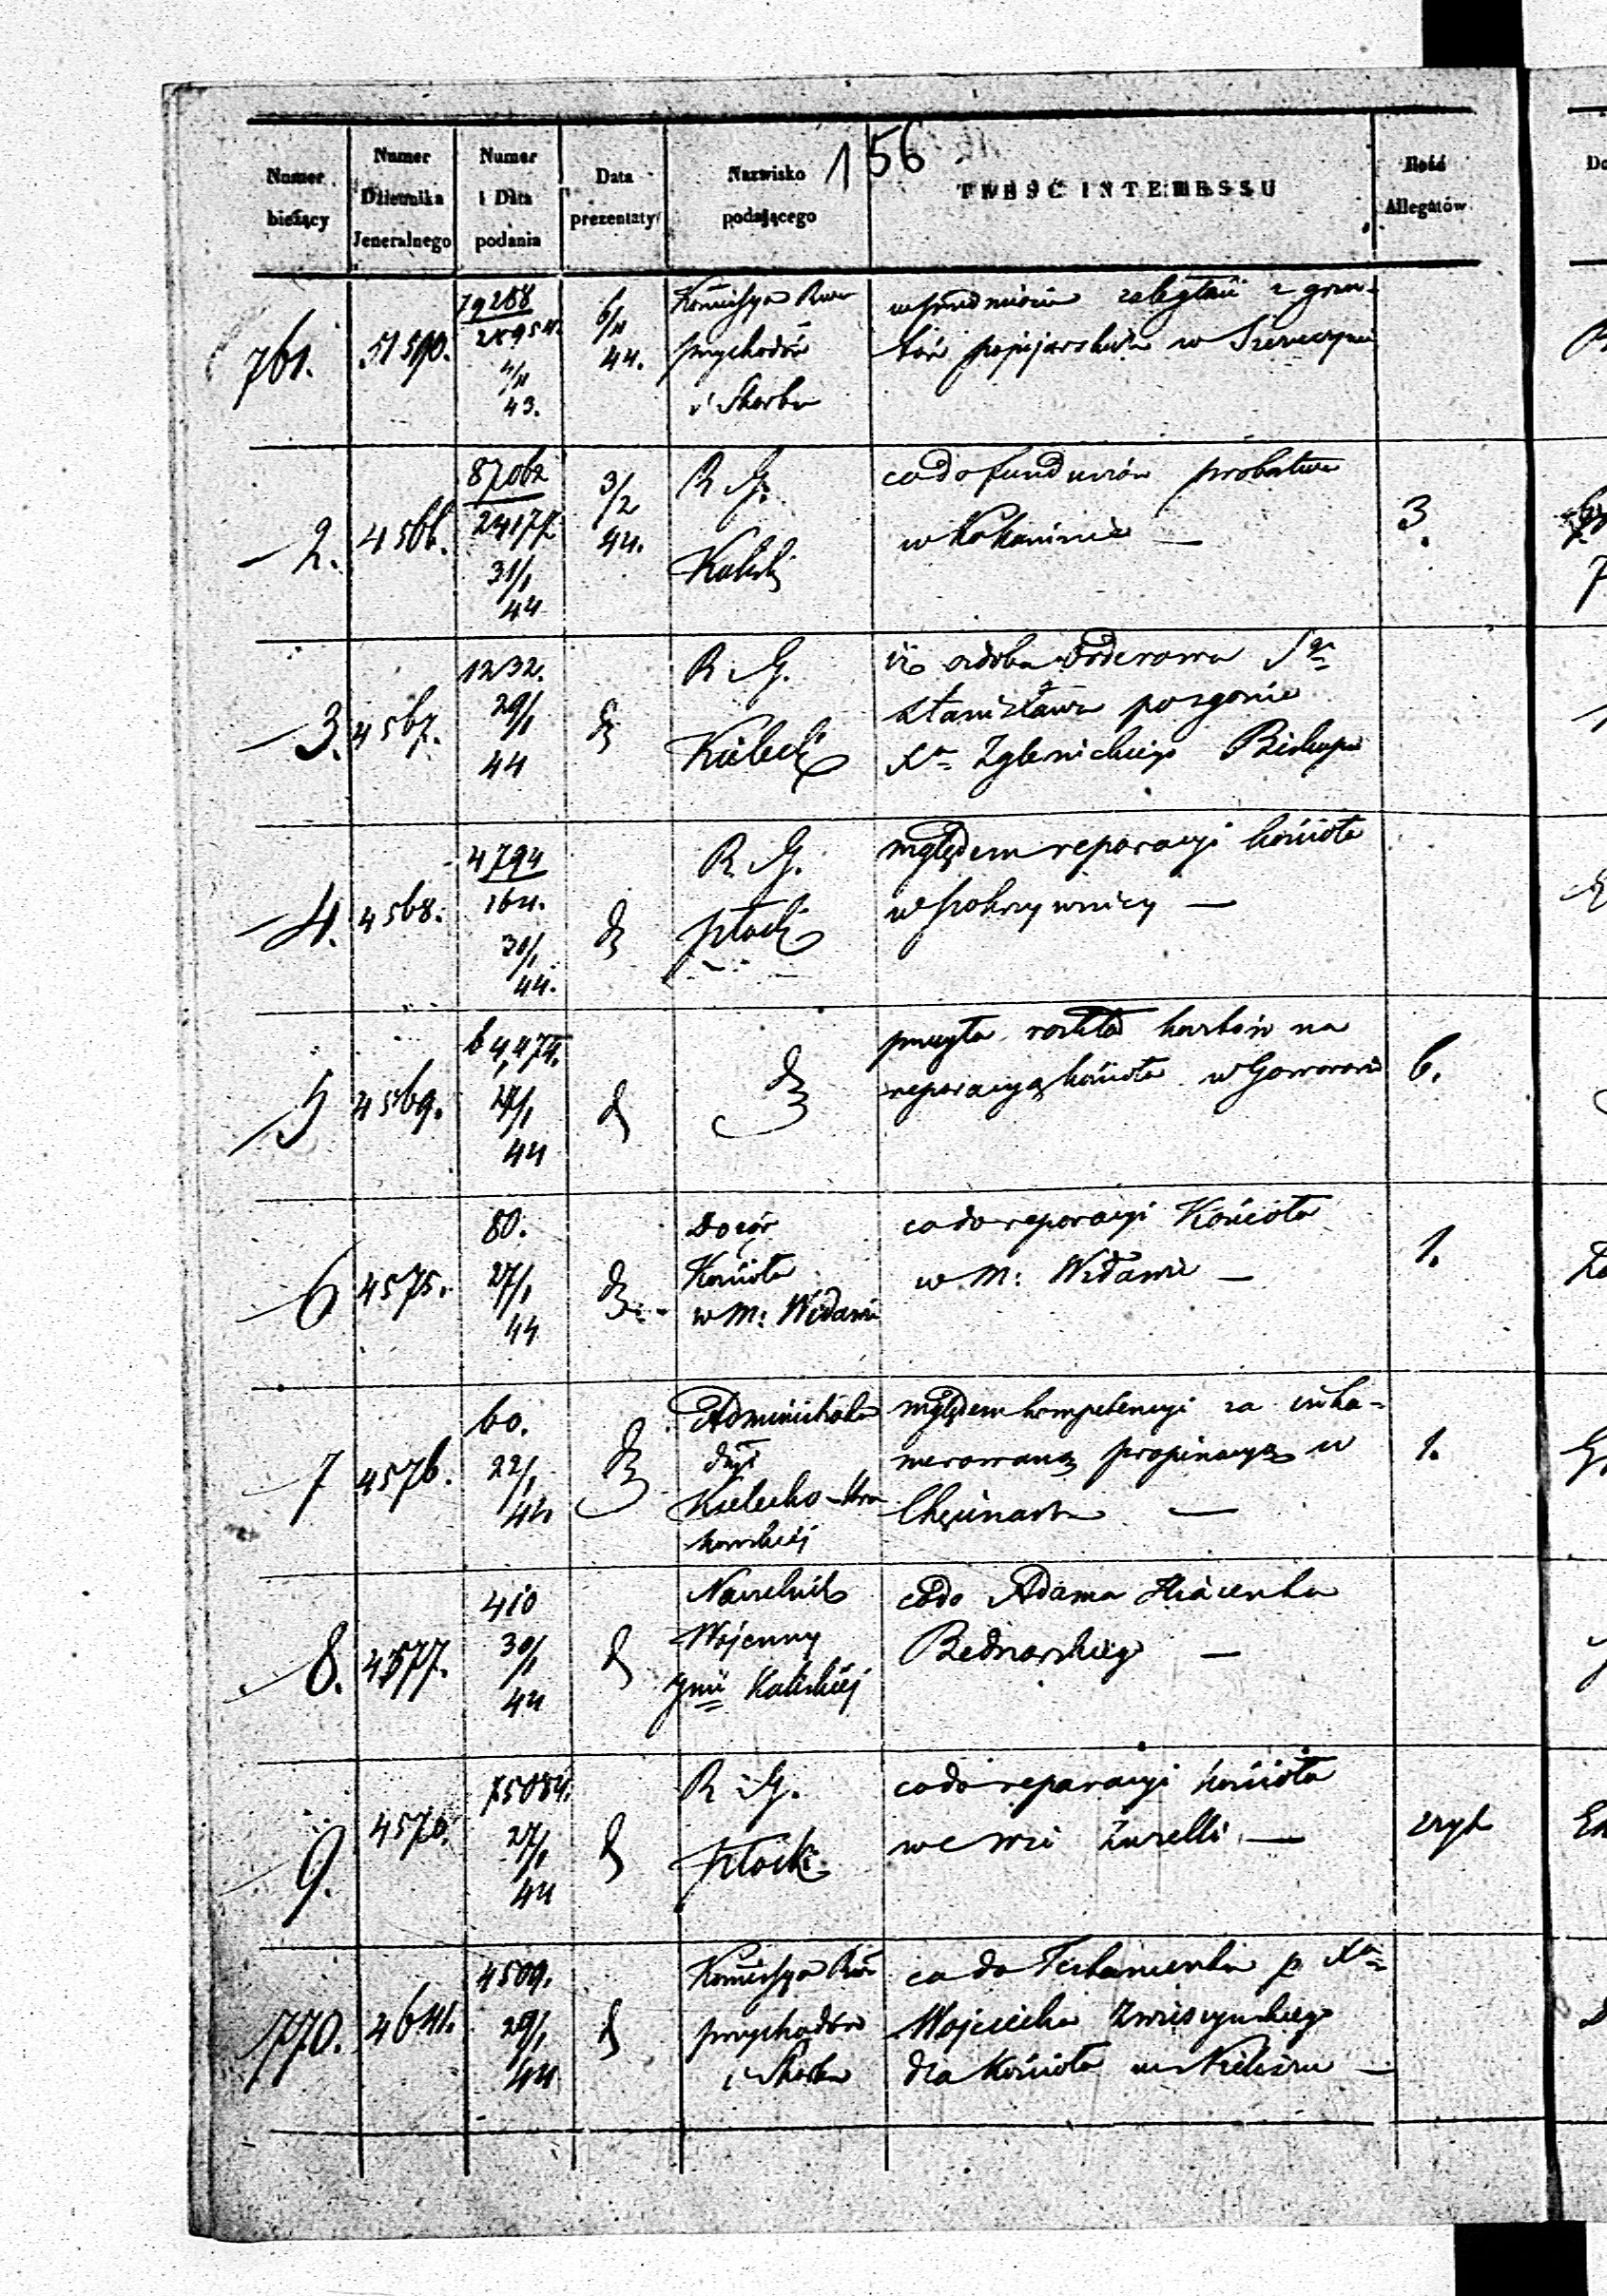 156
Numer bieżący
Numer Dziennika Jeneralnego
Numer i Data podania
Data prezentaty
Nazwisko podającego
TREŚĆ INTERESSU
Ilość Allegatów
761.
79288
4/11
43.
6/11
44.
Kommissya
przychodów
i Skarbu
w przedmiocie zaległości z grun-
tów pojezuickich w
2.
4566.
87062
24177
31/1
44
3/2
44.
R. G.
Kaliski
co do funduszów probostwa
w Kokaninie —
3.
3.
4567.
1232.
29/1
44
R. G.
Kielecki
iż ozdoba orderowa Sgo
Stanisława po zgonie
Xa Zglenickiego Biskupa
4.
4568.
4794
164.
30/1
44.
R. G.
Płocki
względem reparacyi kościoła
w Pokrzywnicy —
5
4569.
64,474.
27/1
44
przesyła rozkład kosztów na
reparacyą kościoła w Goworowie
6.
6
4575.
80.
27/1
44
Dozór
Kościoła
w M: Widawie
co do reparacyi Kościoła
w M: Widawie —
1.
7
4576.
60.
22/1
44
Administrator
Kielecko-Kra
kowskiej
względem kompetencyi za inka-
merowaną propinacyą w
Chęcinach —
1.
8.
4577.
410
30/1
44
Naczelnik
Wojenny
Gnii Kaliskiej
co do Adama Hiacenta
Bednarskiego —
9.
4578.
75084.
27/1
44
R. G.
Płocki
co do reparacyi kościoła
we wsi Żurelli —
zszyt
770.
4641.
4509.
29/1
44
Kommissya
przychodów
i Skarbu
co do Testamentu p Xa
Wojciecha
dla Kościoła w Nieliszu —